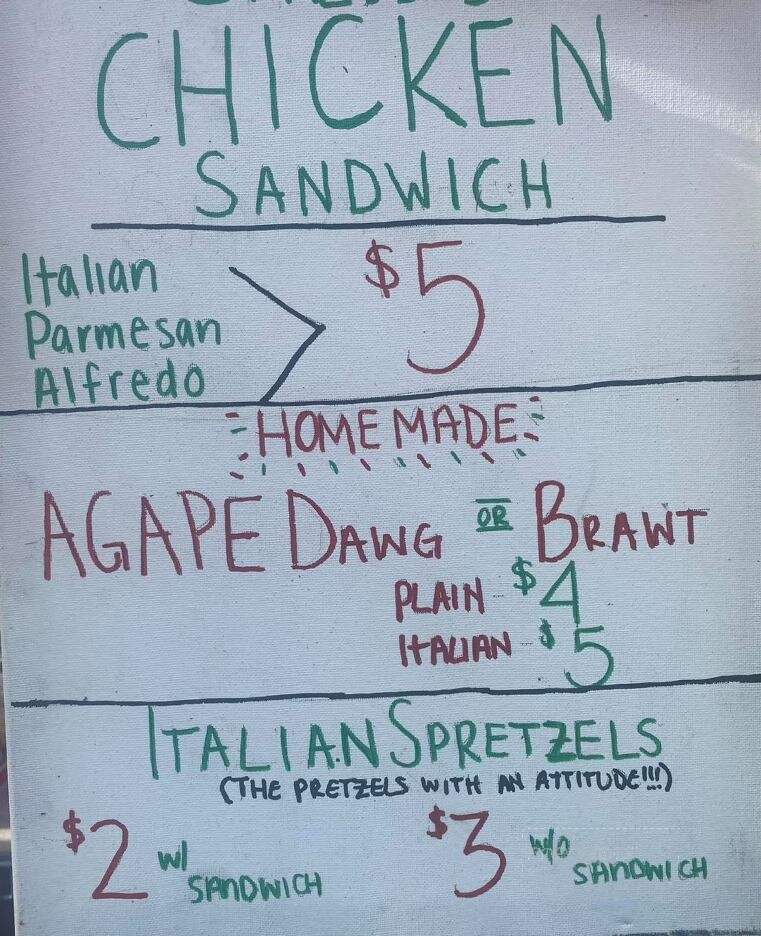 CHICKEN
SANDWICH
Italian
Parmesan
Alfredo
$5
HOMEMADE
AGAPE DAWG OR BRAWT
PLAIN - $4
ITALIAN - $5
ITALIAN SPRETZELS
(THE PRETZELS WITH AN ATTITUDE!!!)
$2 w/ SANDWICH
$3 w/o SANDWICH